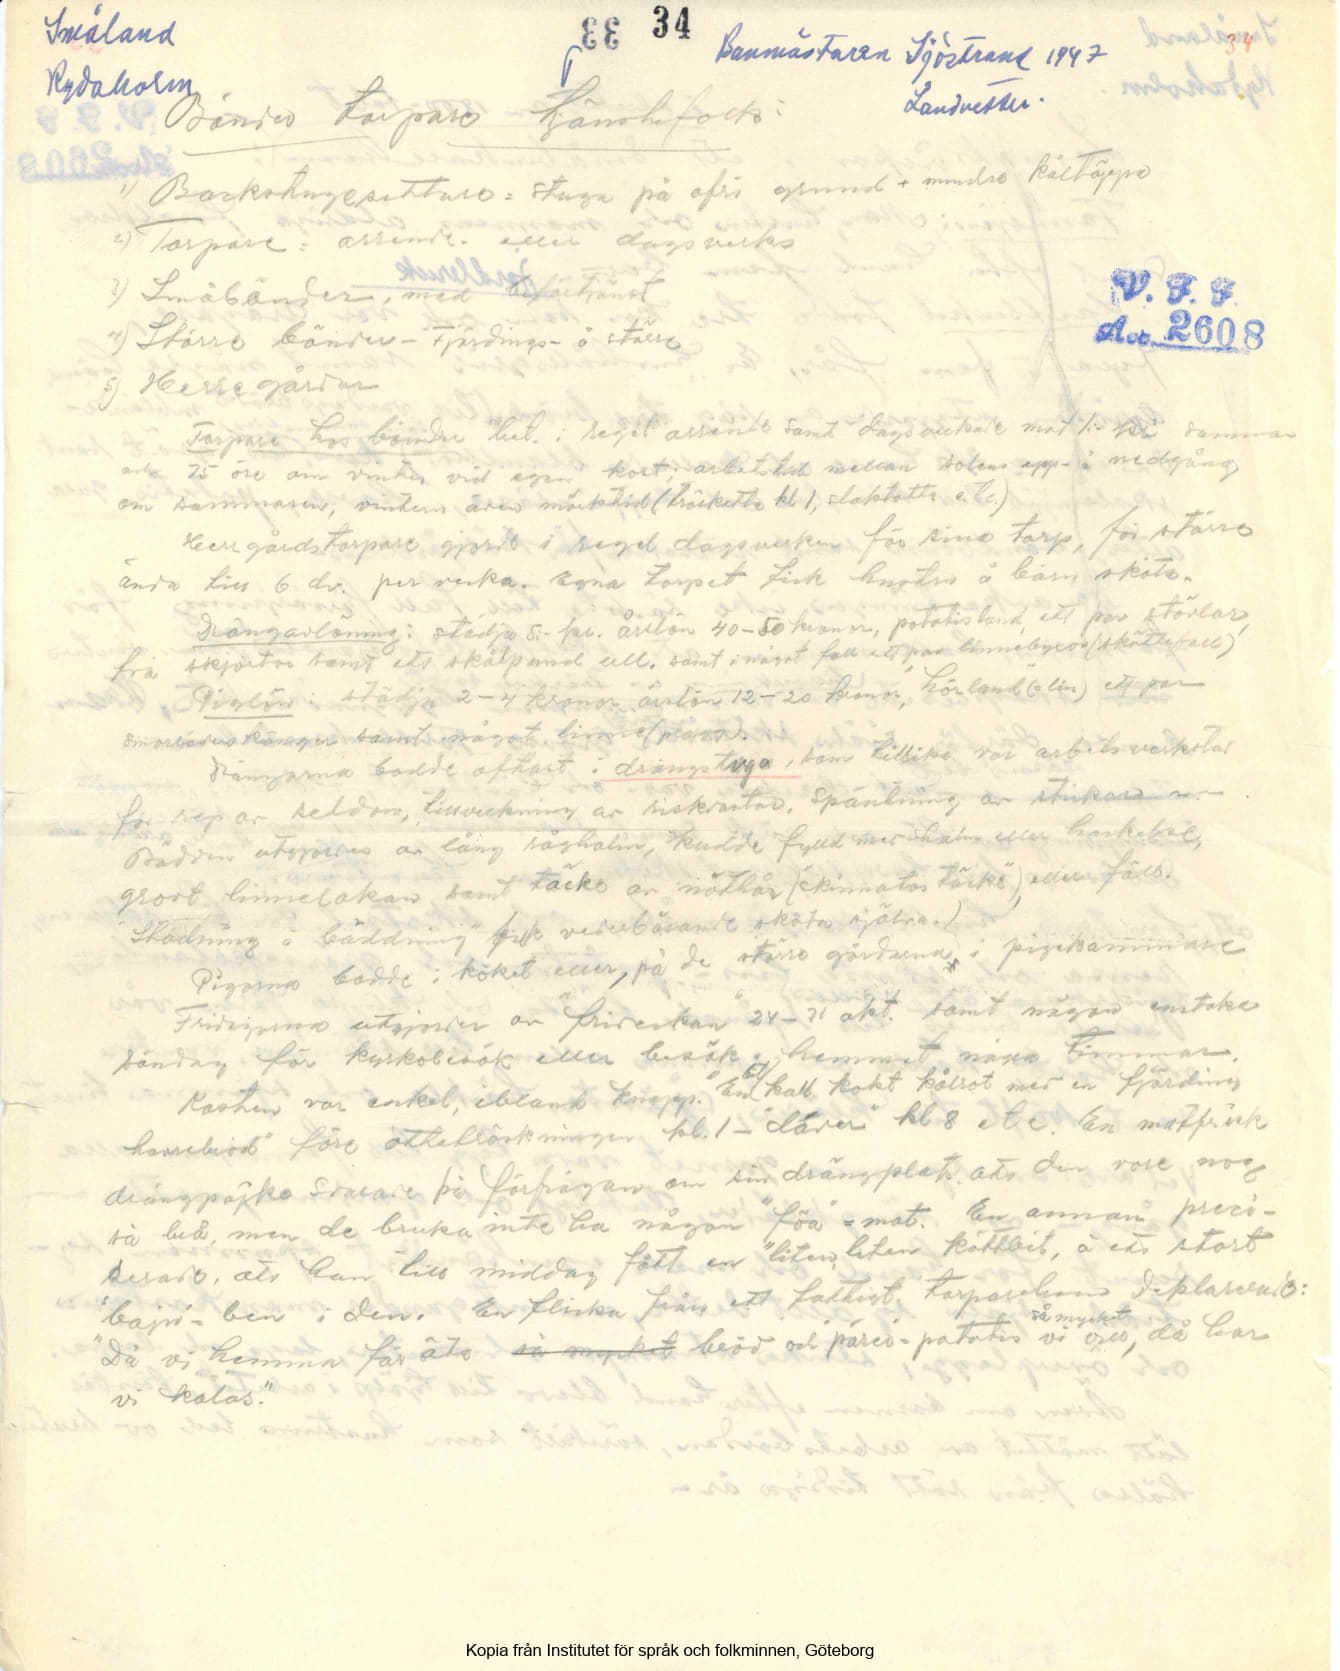 Småland
Rydaholm
33 34
34
Banmästaren Sjöstrand 1947
Landvetter.
Bönder torpare tjänstefolk:
V. F. F.
Acc. 2608
1) Backstugesittare = stuga på ofri grund + mindre kåltäppa
2) Torpare = arrende. eller dagsverks
3) Småbönder, med
4) Större bönder – fjärdings- å större
5) Herregårdar
Torpare hos bönder bet. i regel arrende samt dagsverkade mot 1:- sommar
och 75 öre om vintern vid egen kost; arbetstid mellan solens upp- å nedgång
om sommaren, vintern även mörktid (trösketta kl 1, slaktotta etc.)
Herrgårdstorpare gjorde i regel dagsverken för sina torp, för större
ända till 6 dv. per vecka. Egna torpet fick hustru å barn sköta.
Drängavlöning: städja 5:- kr. årslön 40–50 kronor, potatisland, ett par stövlar,
två skjortor samt ett skålpund ull. samt i något fall ett par linnebyxor
Piglön: städja 2–4 kronor årslön 12–20 kronor, "hörland" (=lin) ett par
smorläderskängor samt något linne
Drängarna bodde oftast i drängstuga, som tillika var arbetsverkstad
för rep av seldon, tillverkning av Spåntning av stickor m.
Bädden utgjordes av lång råghalm, kudde fylld med halm eller
grovt linnelakan samt täcke av nöthår ("skinnatos täcke"), eller fäll.
"Städning å bäddning" fick vederbörande sköta själva.
Pigorna bodde i köket eller, på de större gårdarna, i pigkammare
Fridagarna utgjordes av "friveckan" 24–31 okt. samt någon enstaka
söndag för kyrkobesök eller besök i hemmet några timmar.
Kosten var enkel, ibland knapp. "En kall kokt kålrot med en fjärding
havrebröd" före ottetröskningen kl. 1 – "dáver" kl 8 etc. En matfrisk
drängpojke svarade på förfrågan om sin drängplats, att den vore nog
så bra, men de bruka inte ha någon "föa" = mat. En annan preci-
serade, att han till middag fått en "liten, liten köttbit, å ett stort
"bajn = ben i den. En flicka från ett fattigt torparehem deklarerade:
"Då vi hemma får äta så mycket bröd och "päreo = potatis så mycket vi vill, då har
vi kalas."
Kopia från Institutet för språk och folkminnen, Göteborg